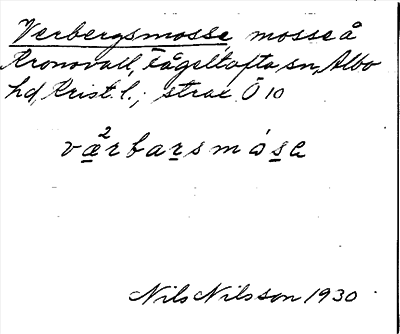 Verbergsmosse, mosse å
Kronovall, Fågeltofta sn, Albo
hd, Krist. l.; strax Ö 10
v²ærbarsmósa
Nils Nilsson 1930